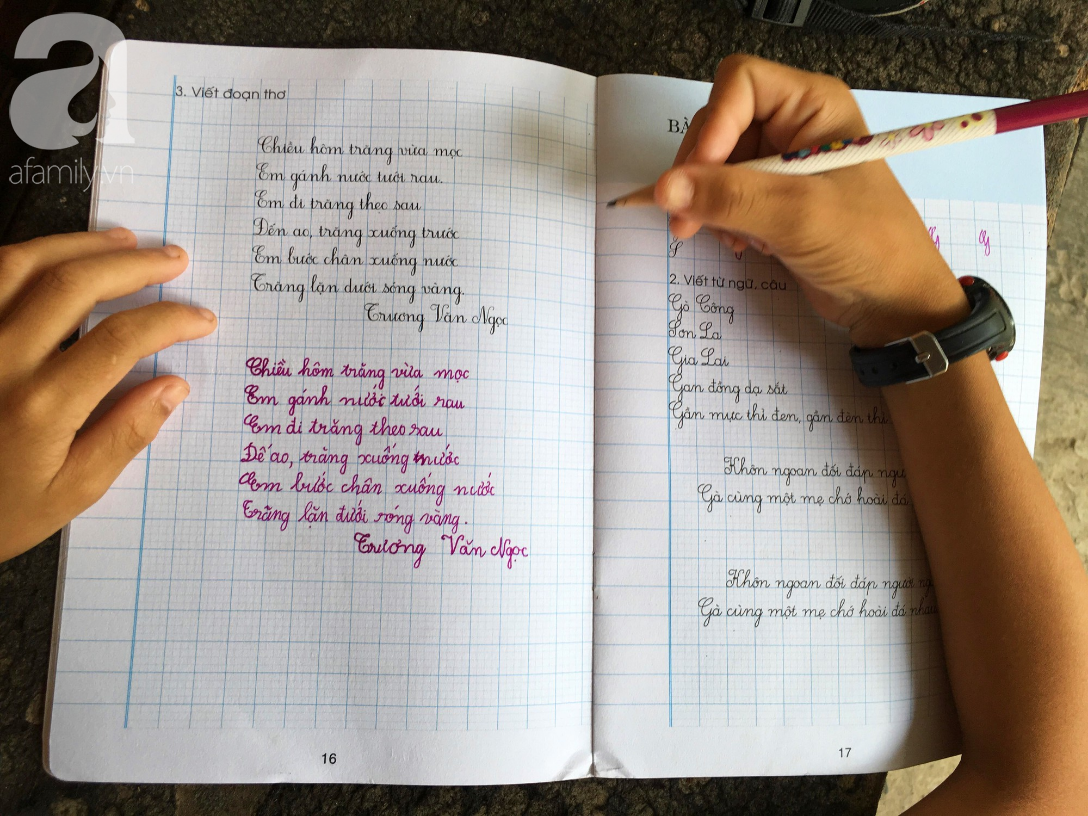 a
afamily.vn
3. Viết đoạn thơ
Chiều hôm trăng vừa mọc
Em gánh nước tưới rau.
Em đi trăng theo sau
Đến ao, trăng xuống trước
Em bước chân xuống nước
Trăng lặn dưới sóng vàng.
Trương Văn Ngọc
Chiều hôm trăng vừa mọc
Em gánh nước tưới rau
Em đi trăng theo sau
Dế ao, trăng xuống nước
Em bước chân xuống nước
Trăng lặn dưới sóng vàng.
Trương Văn Ngọc
16
BÀ
G
2. Viết từ ngữ, câu
Gò Công
Sơn La
Gia Lai
Gan đồng dạ sắt
Gần mực thì đen, gần đèn thì
Khôn ngoan đối đáp ngư
Gà cùng một mẹ chớ hoài đá
Khôn ngoan đối đáp người ng
Gà cùng một mẹ chớ hoài đá nhau
17